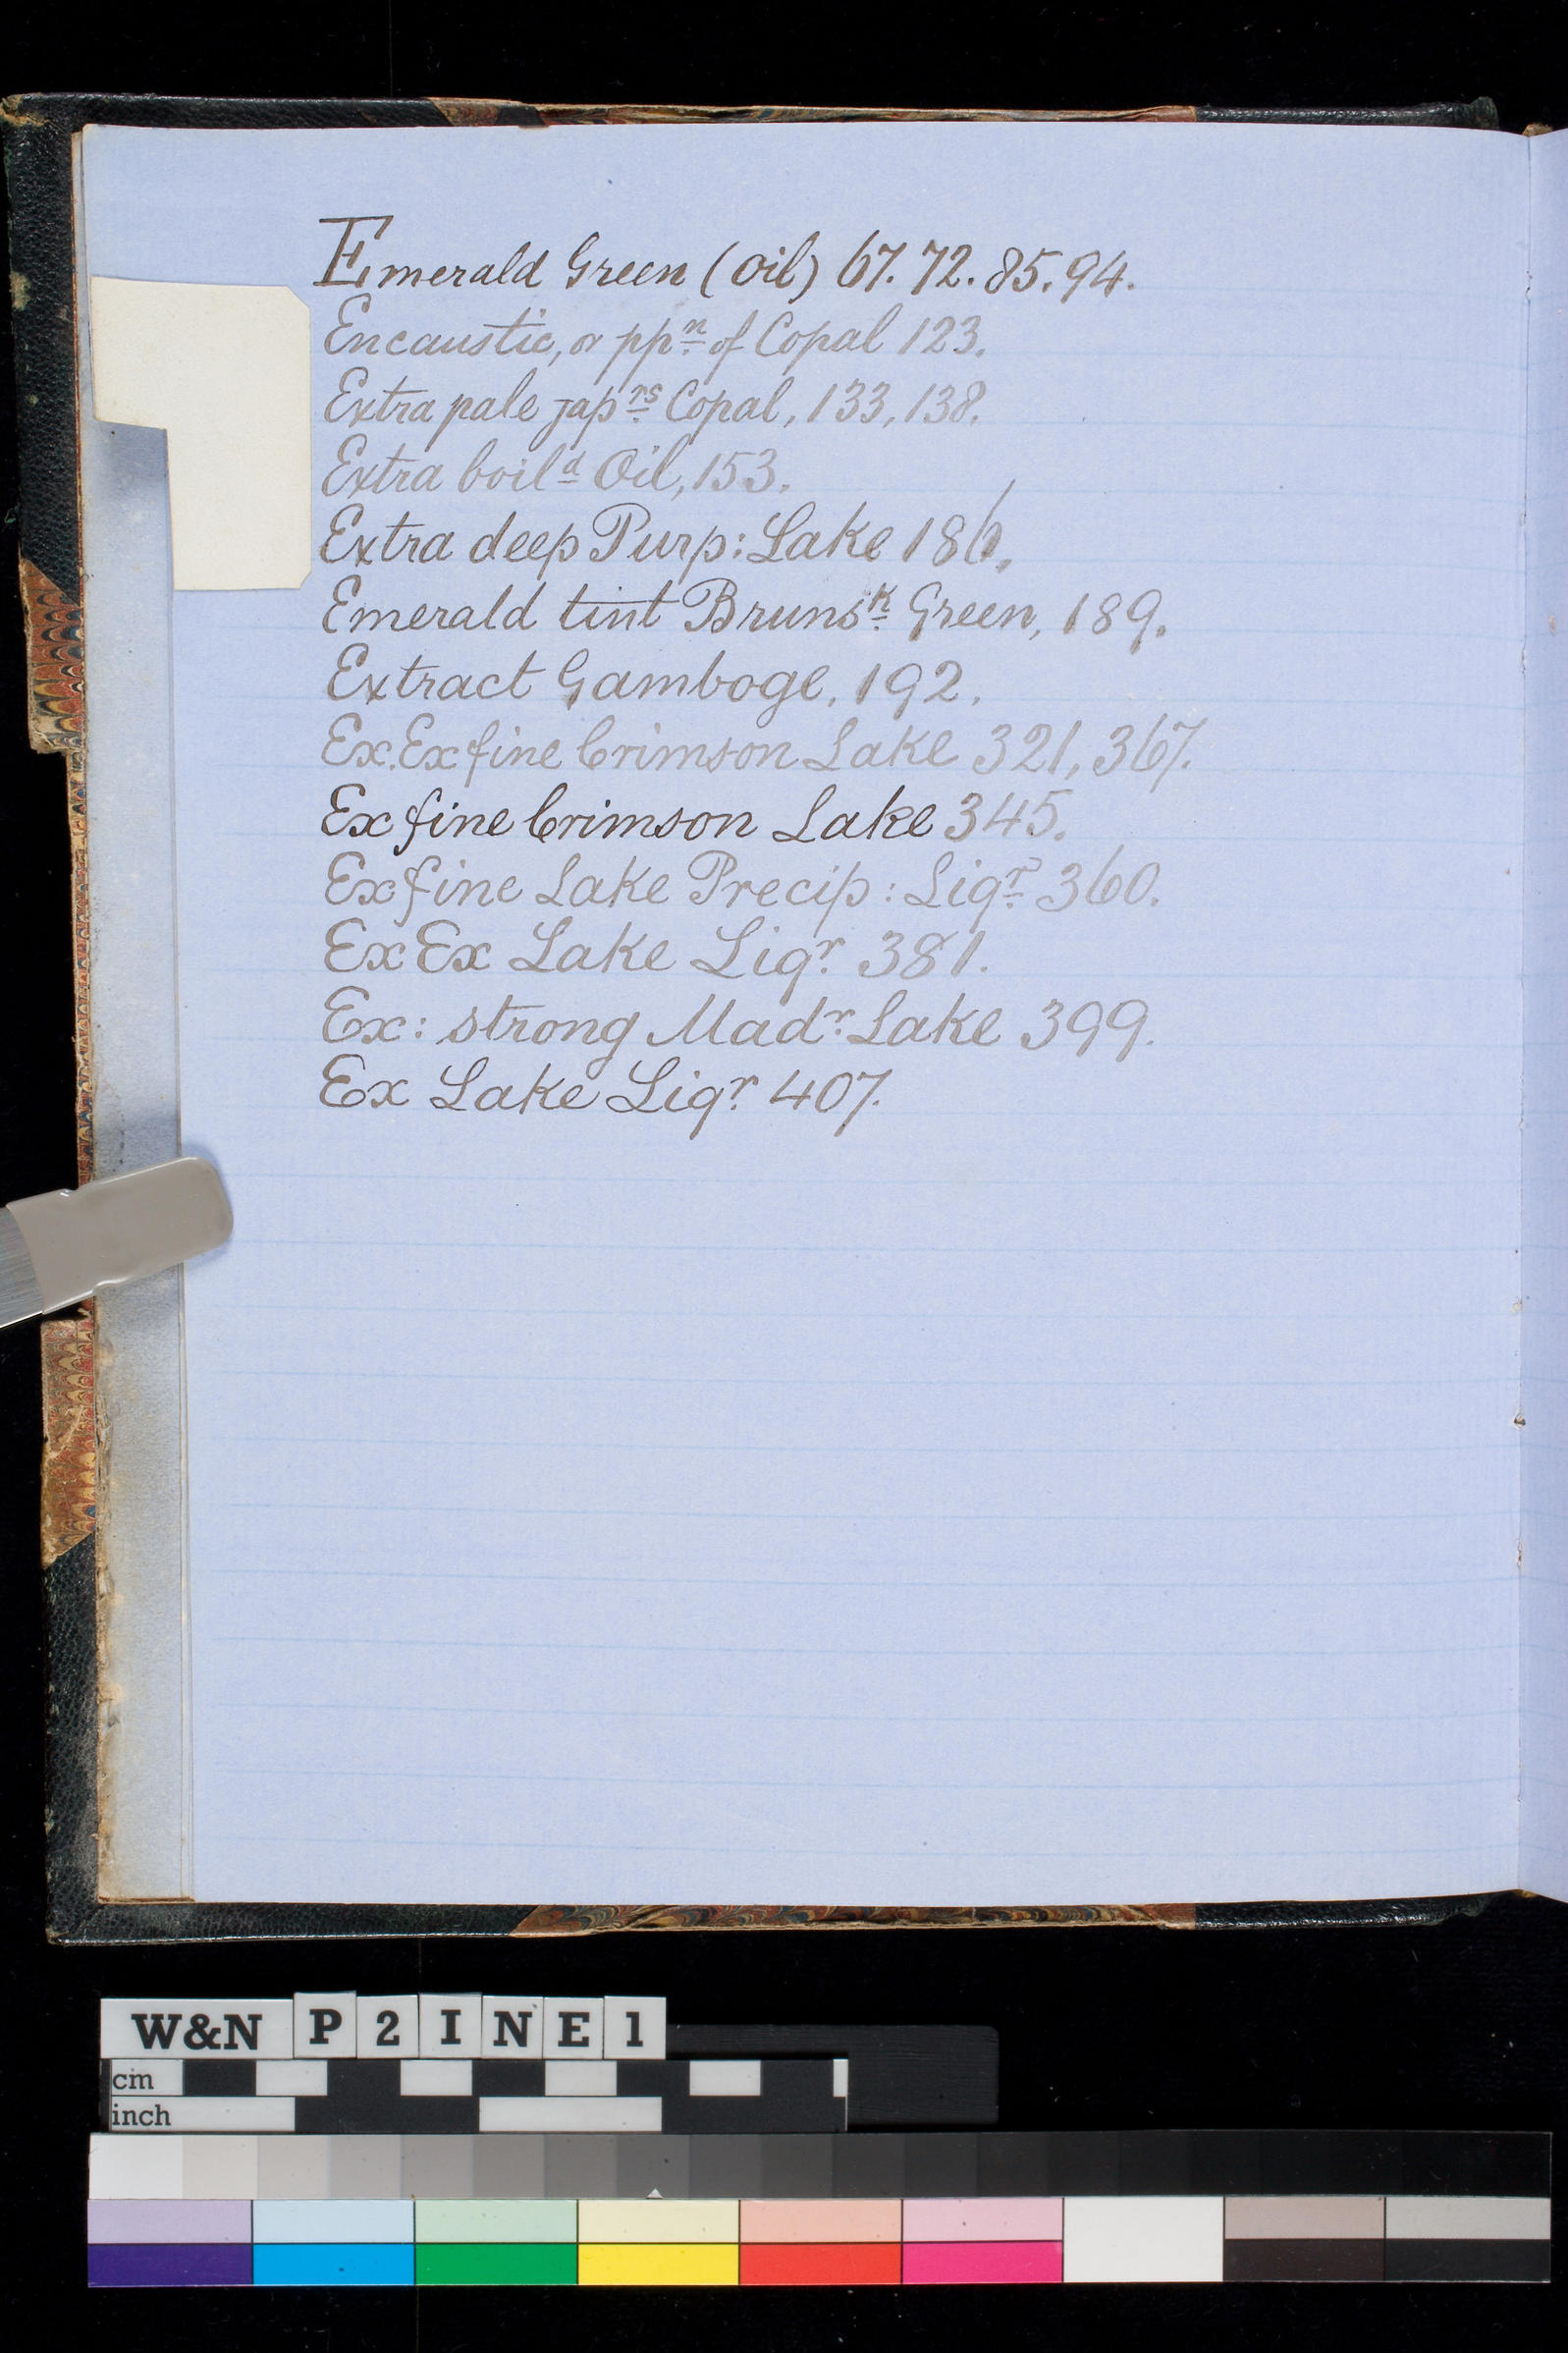 Emerald Green (Oil) 67. 72. 85. 94.
Encaustic, or ppn. of Copal 123.
Extra pale japrs. Copal, 133, 138.
Extra boild Oil, 153.
Extra deep Purp: Lake 186.
Emerald tint Brunsk. Green, 189.
Extract Gamboge, 192.
Ex. Ex fine Crimson Lake 321, 367.
Ex fine Crimson Lake 345.
Ex fine Lake Precip: Liqr. 360.
Ex Ex Lake Liqr. 381.
Ex: strong Madr. Lake 399.
Ex Lake Liqr. 407.
W&N P 2 I N E 1
cm
inch